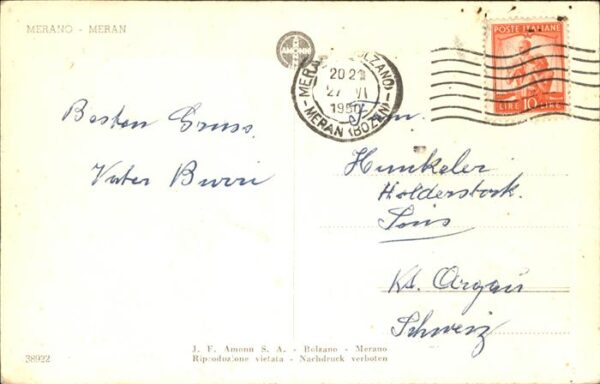 MERANO - MERAN
AMONN
POSTE ITALIANE
LIRE 10 LIRE
MERANO (BOLZANO)
20 21
27 VI
1950
MERAN (BOLZANO)
Besten Gruss
Vater Burri
Hunkeler
Holderstock.
Sins
Kt. Argau
Schweiz
J. F. Amonn S. A. - Bolzano - Merano
Riproduzione vietata - Nachdruck verboten
38922